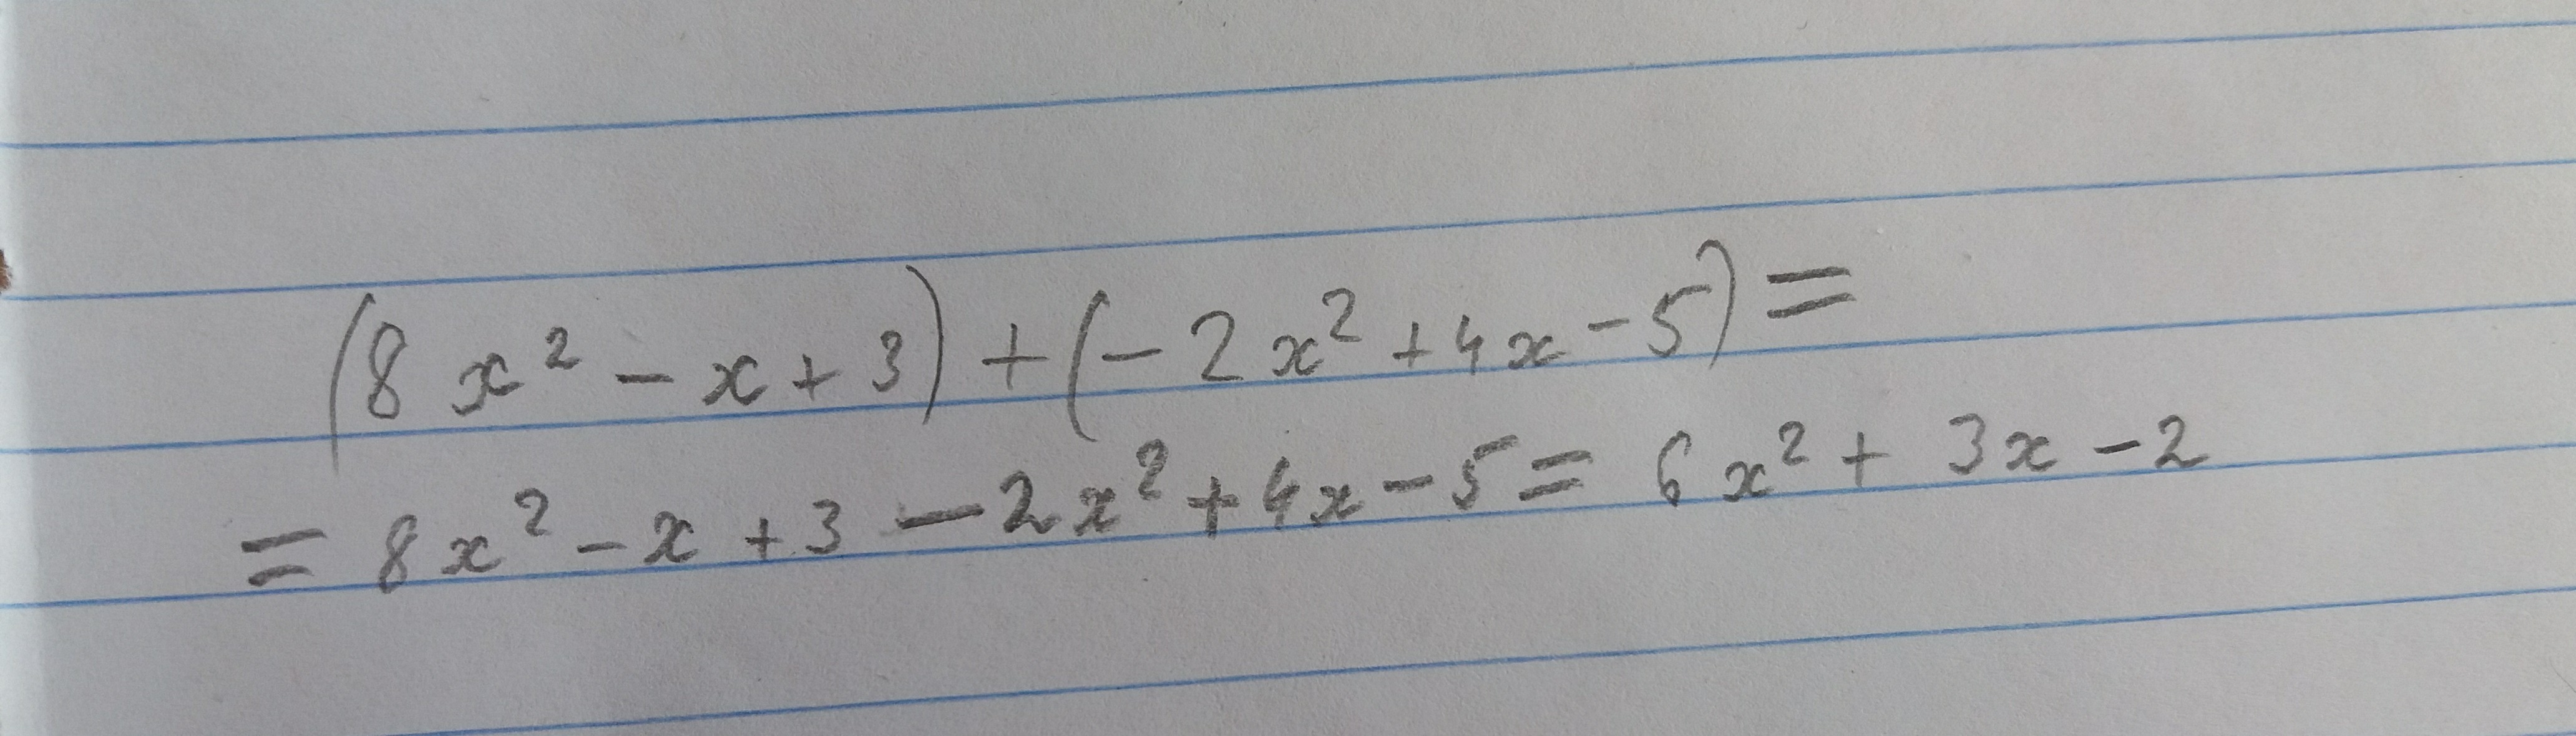 (8x² - x + 3) + (- 2x² + 4x - 5) =
= 8x² - x + 3 - 2x² + 4x - 5 = 6x² + 3x - 2